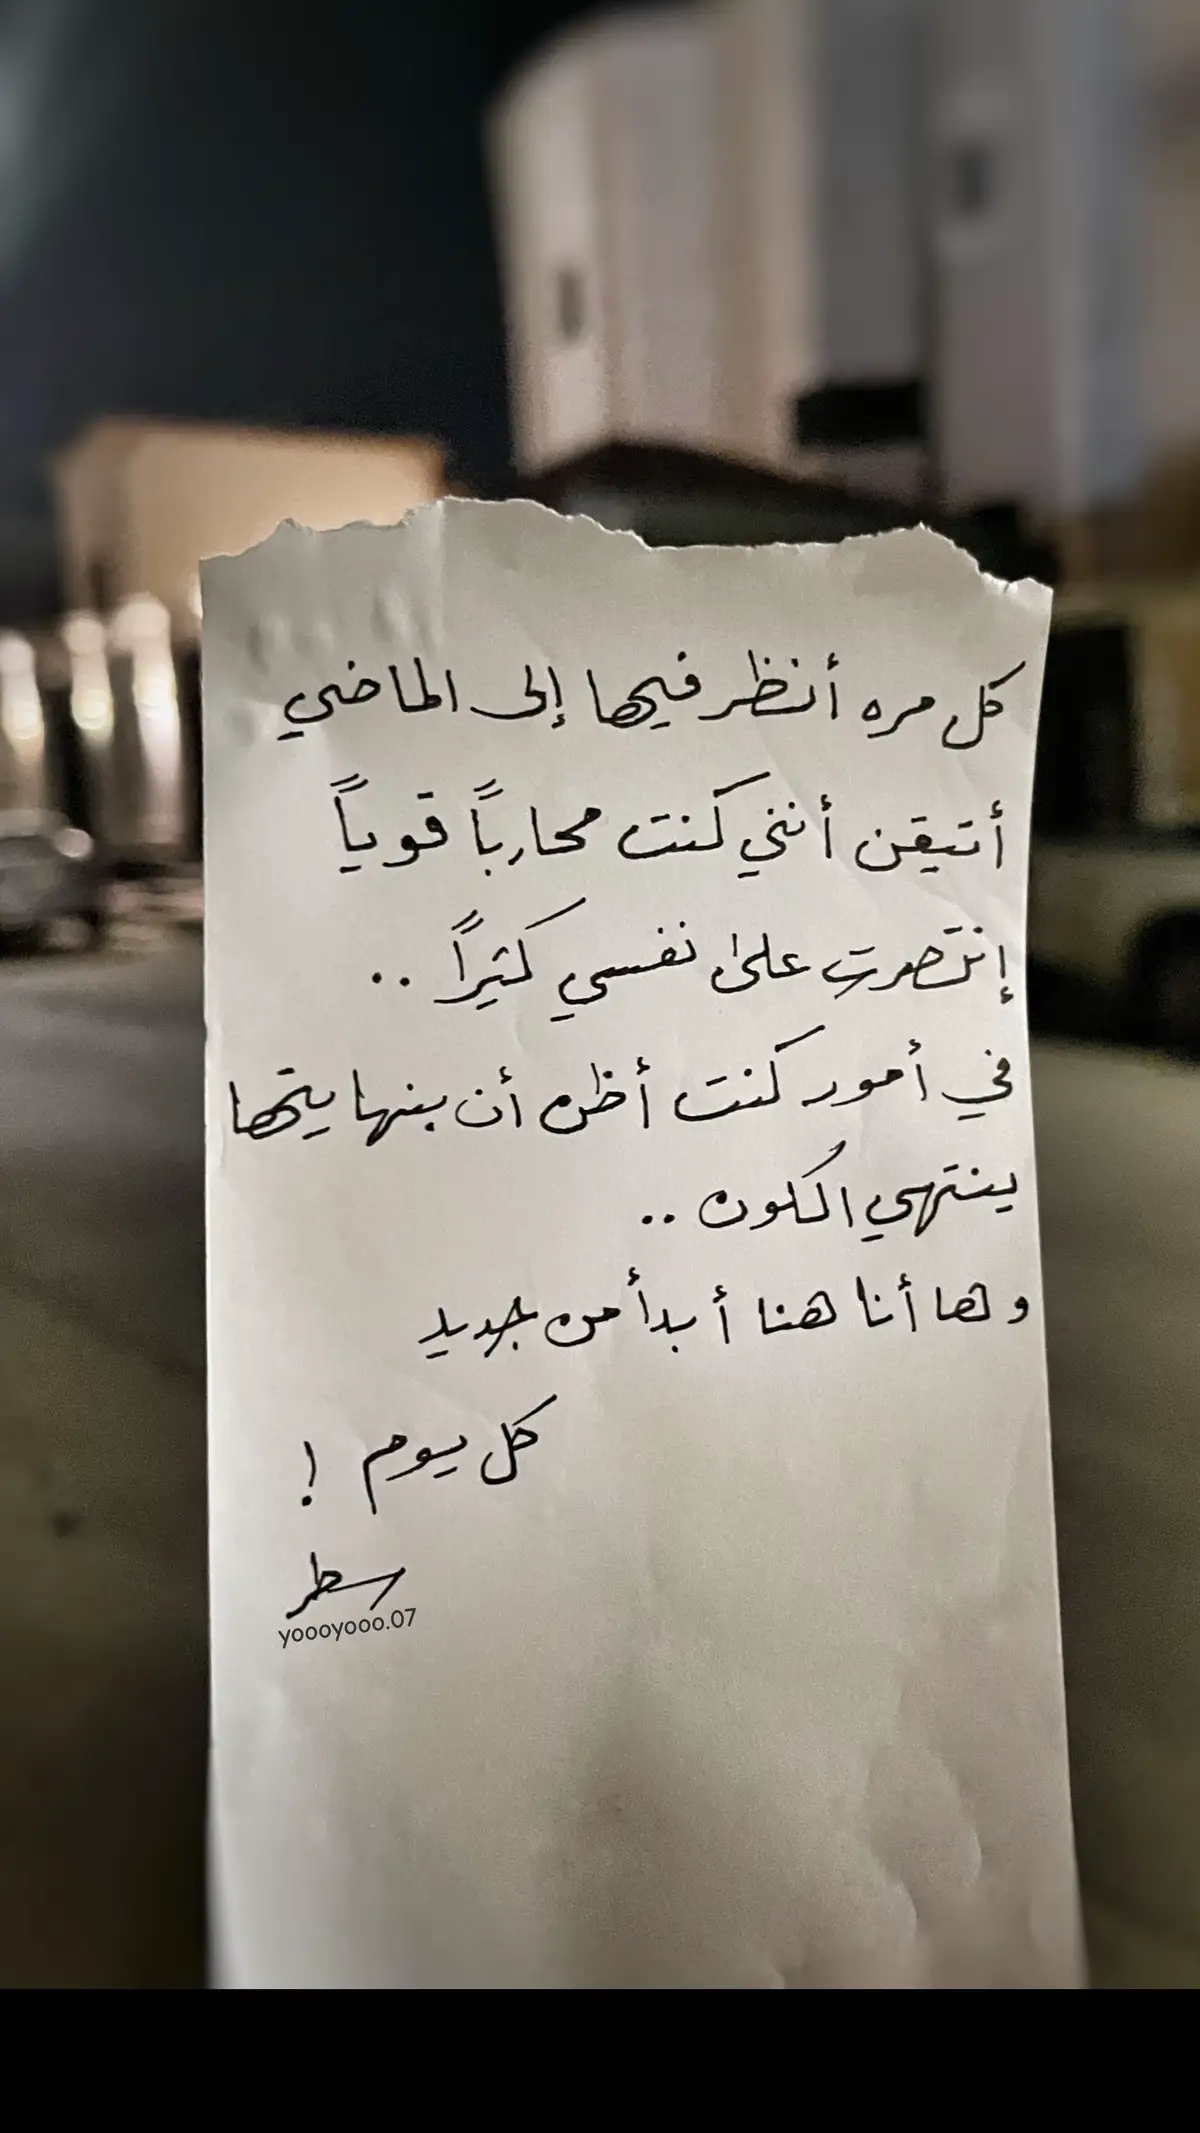 كل مره أنظر فيها إلى الماضي
أتيقن أنني كنت محارباً قوياً
إنتصرت على نفسي كثيراً ..
في أمور كنت أظن أن بنهايتها
ينتهي الكون ..
وها أنا هنا أبدأ من جديد
كل يوم !
سطر
yoooyooo.07